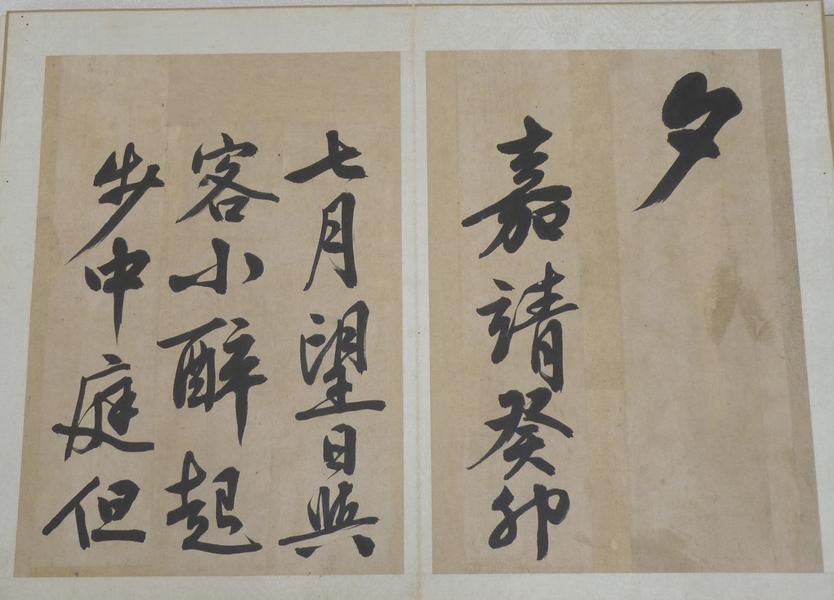 夕
嘉靖癸卯
七月望日與
客小醉起
步中庭但